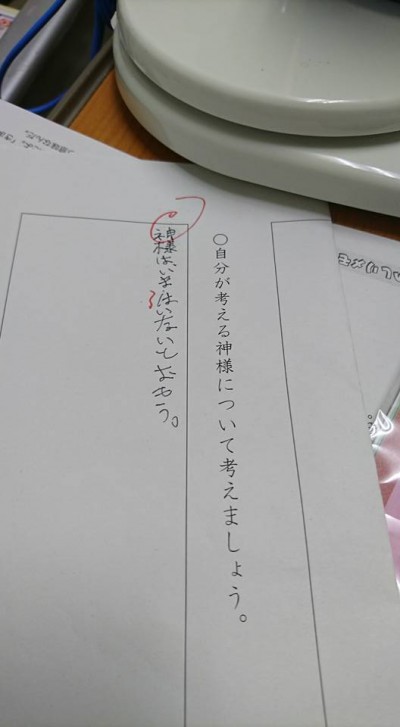 ○自分が考える神様について考えましょう。
神様は、いまはいないとおもう。